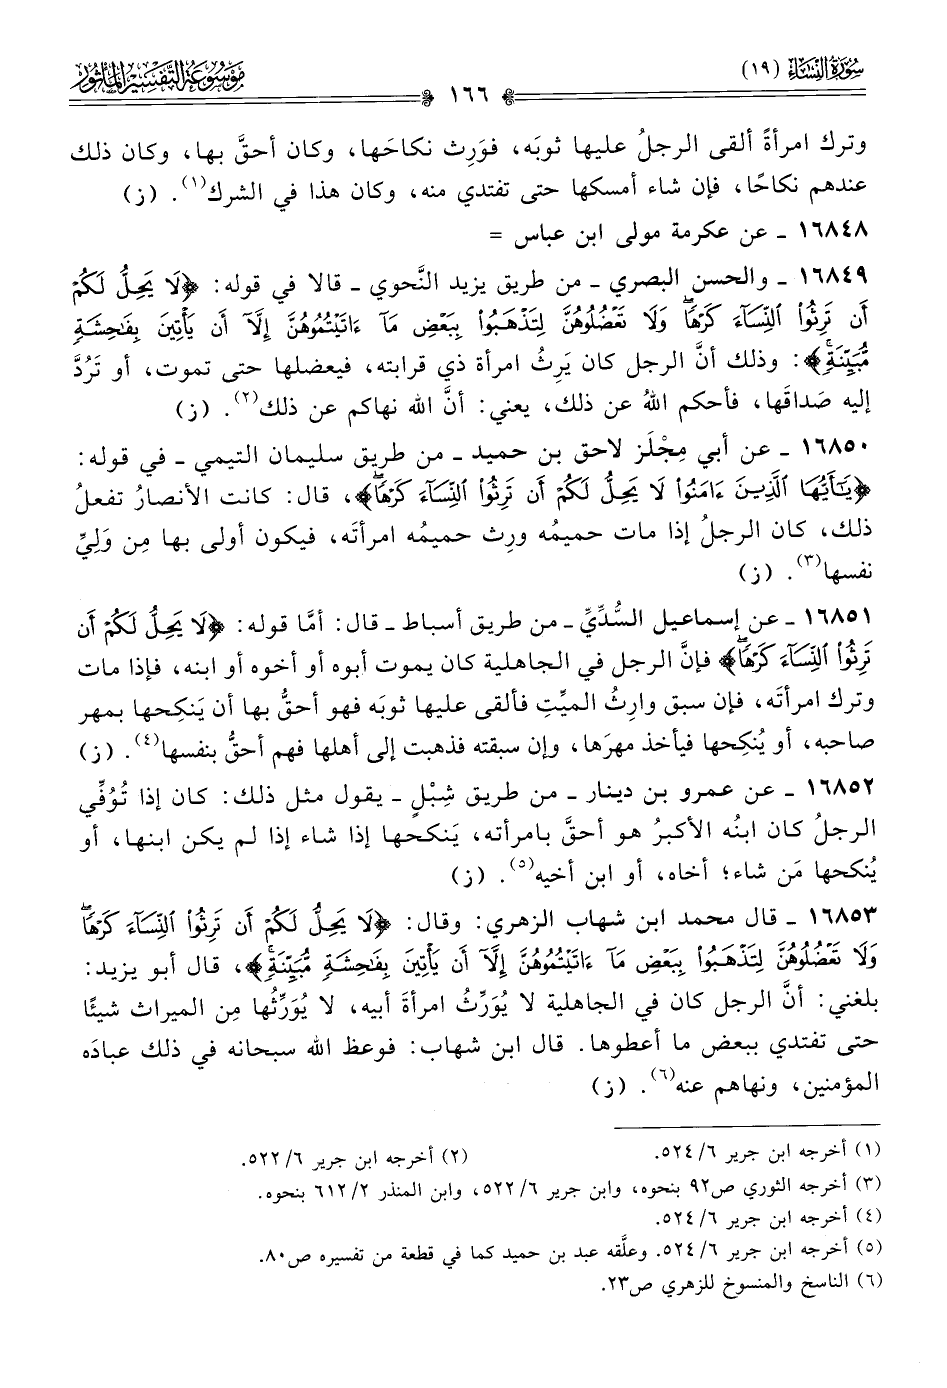 سورة النساء (١٩)
موسوعة التفسير المأثور
١٦٦
وترك امرأةً ألقى الرجلُ عليها ثوبَه، فوَرِث نكاحَها، وكان أحقَّ بها، وكان ذلك
عندهم نكاحًا، فإن شاء أمسكها حتى تفتدي منه، وكان هذا في الشرك(١). (ز)
١٦٨٤٨ ـ عن عكرمة مولى ابن عباس =
١٦٨٤٩ ـ والحسن البصري ـ من طريق يزيد النَّحوي ـ قالا في قوله: ﴿لَا يَحِلُّ لَكُمْ
أَن تَرِثُوا۟ ٱلنِّسَآءَ كَرْهًاۖ وَلَا تَعْضُلُوهُنَّ لِتَذْهَبُوا۟ بِبَعْضِ مَآ ءَاتَيْتُمُوهُنَّ إِلَّآ أَن يَأْتِينَ بِفَـٰحِشَةٍ
مُّبَيِّنَةٍۚ﴾: وذلك أنَّ الرجل كان يَرِثُ امرأة ذي قرابته، فيعضلها حتى تموت، أو تَرُدَّ
إليه صَداقَها، فأحكم اللهُ عن ذلك، يعني: أنَّ الله نهاكم عن ذلك(٢). (ز)
١٦٨٥٠ ـ عن أبي مِجْلَز لاحق بن حميد ـ من طريق سليمان التيمي ـ في قوله:
﴿يَـٰٓأَيُّهَا ٱلَّذِينَ ءَامَنُوا۟ لَا يَحِلُّ لَكُمْ أَن تَرِثُوا۟ ٱلنِّسَآءَ كَرْهًاۖ﴾، قال: كانت الأنصارُ تفعلُ
ذلك، كان الرجلُ إذا مات حميمُه ورِث حميمُه امرأتَه، فيكون أولى بها مِن وَلِيِّ
نفسها(٣). (ز)
١٦٨٥١ ـ عن إسماعيل السُّدِّيِّ ـ من طريق أسباط ـ قال: أمَّا قوله: ﴿لَا يَحِلُّ لَكُمْ أَن
تَرِثُوا۟ ٱلنِّسَآءَ كَرْهًاۖ﴾ فإنَّ الرجل في الجاهلية كان يموت أبوه أو أخوه أو ابنه، فإذا مات
وترك امرأتَه، فإن سبق وارِثُ الميِّتِ فألقى عليها ثوبَه فهو أحقُّ بها أن يَنكِحها بمهر
صاحبه، أو يُنكِحها فيأخذ مهرَها، وإن سبقته فذهبت إلى أهلها فهم أحقُّ بنفسها(٤). (ز)
١٦٨٥٢ ـ عن عمرو بن دينار ـ من طريق شِبْلٍ ـ يقول مثل ذلك: كان إذا تُوُفِّي
الرجلُ كان ابنُه الأكبرُ هو أحقَّ بامرأته، يَنكحها إذا شاء إذا لم يكن ابنها، أو
يُنكحها مَن شاء؛ أخاه، أو ابن أخيه(٥). (ز)
١٦٨٥٣ ـ قال محمد ابن شهاب الزهري: وقال: ﴿لَا يَحِلُّ لَكُمْ أَن تَرِثُوا۟ ٱلنِّسَآءَ كَرْهًاۖ
وَلَا تَعْضُلُوهُنَّ لِتَذْهَبُوا۟ بِبَعْضِ مَآ ءَاتَيْتُمُوهُنَّ إِلَّآ أَن يَأْتِينَ بِفَـٰحِشَةٍ مُّبَيِّنَةٍۚ﴾، قال أبو يزيد:
بلغني: أنَّ الرجل كان في الجاهلية لا يُوَرِّثُ امرأةَ أبيه، لا يُوَرِّثُها مِن الميراث شيئًا
حتى تفتدي ببعض ما أعطوها. قال ابن شهاب: فوعظ الله سبحانه في ذلك عبادَه
المؤمنين، ونهاهم عنه(٦). (ز)
(١) أخرجه ابن جرير ٦/ ٥٢٤. (٢) أخرجه ابن جرير ٦/ ٥٢٢.
(٣) أخرجه الثوري ص٩٢ بنحوه، وابن جرير ٦/ ٥٢٢، وابن المنذر ٢/ ٦١٢ بنحوه.
(٤) أخرجه ابن جرير ٦/ ٥٢٤.
(٥) أخرجه ابن جرير ٦/ ٥٢٤. وعلَّقه عبد بن حميد كما في قطعة من تفسيره ص٨٠.
(٦) الناسخ والمنسوخ للزهري ص٢٣.